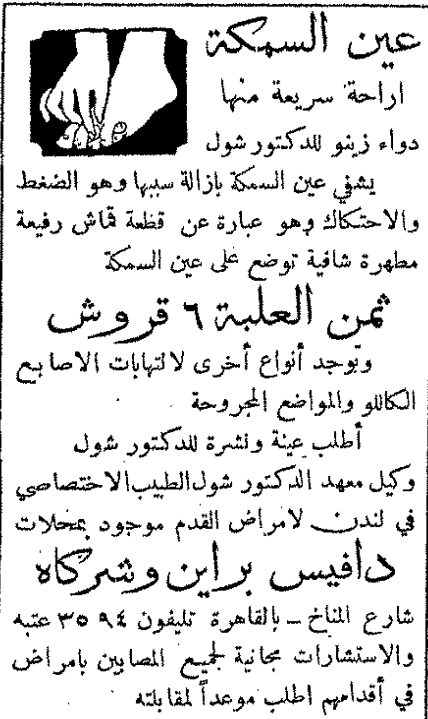 عين السمكة
اراحة سريعة منها
دواء زينو للدكتور شول
يشفي عين السمكة بإزالة سببها وهو الضغط
والاحتكاك وهو عبارة عن قطعة قماش رفيعة
مطهرة شافية توضع على عين السمكة
ثمن العلبة ٦ قروش
وتوجد أنواع أخرى لالتهابات الاصابيع
الكاللو والمواضع المجروحة
أطلب عينة ونشرة للدكتور شول
وكيل معهد الدكتور شول الطبيب الاختصاصي
في لندن لامراض القدم موجود بمحلات
دافيس براين وشركاه
شارع المناخ - بالقاهرة تليفون ٩٤ ٣٥ عتبه
والاستشارات مجانية لجميع المصابين بامراض
في أقدامهم اطلب موعداً لمقابلته